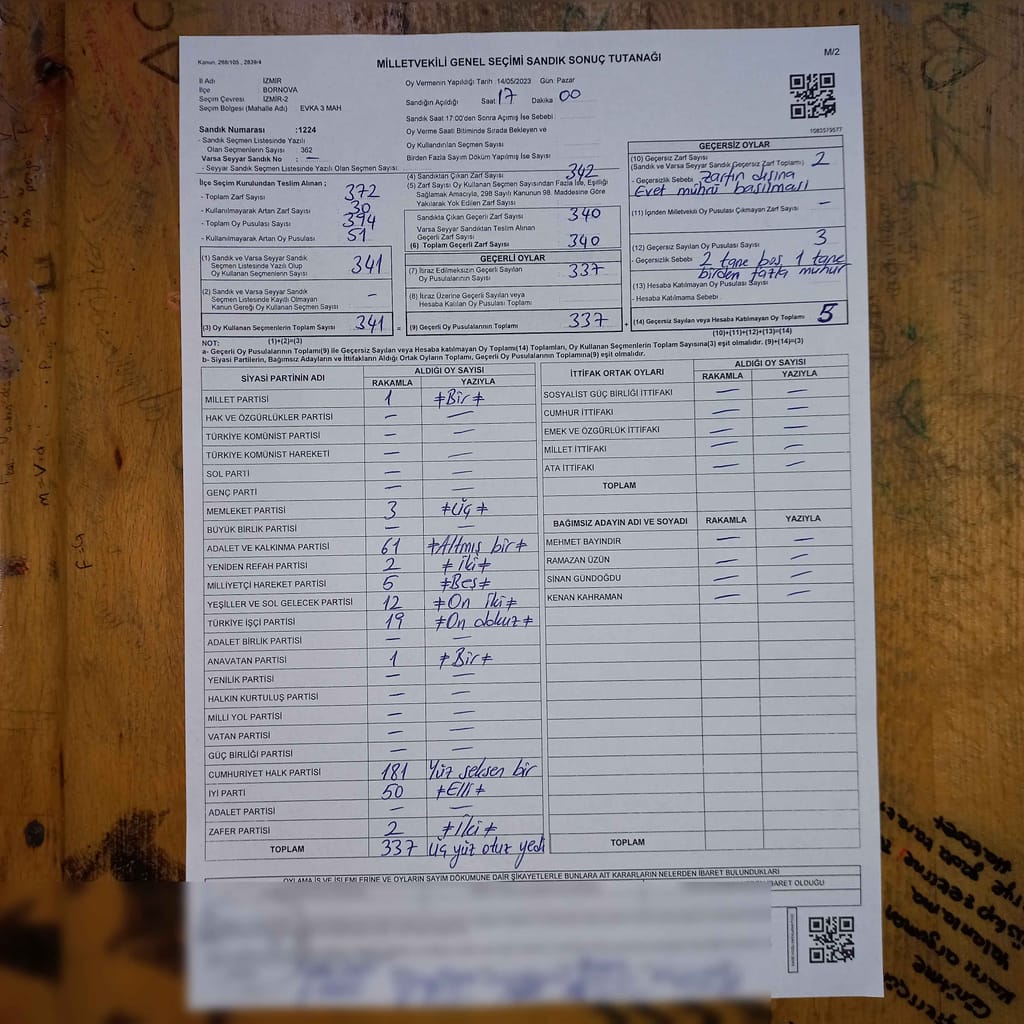 Kanun, 298/105 , 2839/4
MİLLETVEKİLİ GENEL SEÇİMİ SANDIK SONUÇ TUTANAĞI
M/2
İl Adı : İZMİR
İlçe : BORNOVA
Seçim Çevresi : İZMİR-2
Seçim Bölgesi (Mahalle Adı) EVKA 3 MAH
Oy Vermenin Yapıldığı Tarih :14/05/2023 Gün: Pazar
Sandığın Açıldığı Saat 17 Dakika 00
Sandık Saat 17:00'den Sonra Açımış İse Sebebi
Oy Verme Saati Bitiminde Sırada Bekleyen ve
Oy Kullandırılan Seçmen Sayısı
Birden Fazla Sayım Döküm Yapılmış İse Sayısı
Sandık Numarası :1224
- Sandık Seçmen Listesinde Yazılı
Olan Seçmenlerin Sayısı : 362
Varsa Seyyar Sandık No :
- Seyyar Sandık Seçmen Listesinde Yazılı Olan Seçmen Sayısı:
İlçe Seçim Kurulundan Teslim Alınan ;
- Toplam Zarf Sayısı 372
- Kullanılmayarak Artan Zarf Sayısı 30
- Toplam Oy Pusulası Sayısı 394
- Kullanılmayarak Artan Oy Pusulası Sayısı 51
(1) Sandık ve Varsa Seyyar Sandık
Seçmen Listesinde Yazılı Olup
Oy Kullanan Seçmenlerin Sayısı 341
(2) Sandık ve Varsa Seyyar Sandık
Seçmen Listesinde Kayıtlı Olmayan
Kanun Gereği Oy Kullanan Seçmen Sayısı —
(3) Oy Kullanan Seçmenlerin Toplam Sayısı 341 =
(1)+(2)=(3)
(4) Sandıktan Çıkan Zarf Sayısı 342
(5) Zarf Sayısı Oy Kullanan Seçmen Sayısından Fazla İse, Eşitliği
Sağlamak Amacıyla, 298 Sayılı Kanunun 98. Maddesine Göre
Yakılarak Yok Edilen Zarf Sayısı
Sandıkta Çıkan Geçerli Zarf Sayısı 340
Varsa Seyyar Sandıktan Teslim Alınan
Geçerli Zarf Sayısı
(6) Toplam Geçerli Zarf Sayısı 340
GEÇERLİ OYLAR
(7) İtiraz Edilmeksizin Geçerli Sayılan
Oy Pusulalarının Sayısı 337
(8) İtiraz Üzerine Geçerli Sayılan veya
Hesaba Katılan Oy Pusulası Toplamı
(9) Geçerli Oy Pusulalarının Toplamı 337 +
1083579577
GEÇERSİZ OYLAR
(10) Geçersiz Zarf Sayısı
(Sandık ve Varsa Seyyar Sandık Geçersiz Zarf Toplamı) 2
- Geçersizlik Sebebi Zarfın dışına
Evet mührü basılması
(11) İçinden Milletvekili Oy Pusulası Çıkmayan Zarf Sayısı —
(12) Geçersiz Sayılan Oy Pusulası Sayısı 3
- Geçersizlik Sebebi 2 tane boş 1 tane
birden fazla mühür
(13) Hesaba Katılmayan Oy Pusulası Sayısı
- Hesaba Katılmama Sebebi
(14) Geçersiz Sayılan veya Hesaba Katılmayan Oy Toplamı 5
(10)+(11)+(12)+(13)=(14)
NOT:
a- Geçerli Oy Pusulalarının Toplamı(9) ile Geçersiz Sayılan veya Hesaba katılmayan Oy Toplamı(14) Toplamları, Oy Kullanan Seçmenlerin Toplam Sayısına(3) eşit olmalıdır. (9)+(14)=(3)
b- Siyasi Partilerin, Bağımsız Adayların ve İttifakların Aldığı Ortak Oyların Toplamı, Geçerli Oy Pusulalarının Toplamına(9) eşit olmalıdır.
SİYASİ PARTİNİN ADI ALDIĞI OY SAYISI
RAKAMLA YAZIYLA
MİLLET PARTİSİ 1 ≠Bir≠
HAK VE ÖZGÜRLÜKLER PARTİSİ — —
TÜRKİYE KOMÜNİST PARTİSİ — —
TÜRKİYE KOMÜNİST HAREKETİ — —
SOL PARTİ — —
GENÇ PARTİ — —
MEMLEKET PARTİSİ 3 ≠Üç≠
BÜYÜK BİRLİK PARTİSİ — —
ADALET VE KALKINMA PARTİSİ 61 ≠Altmış bir≠
YENİDEN REFAH PARTİSİ 2 ≠İki≠
MİLLİYETÇİ HAREKET PARTİSİ 5 ≠Beş≠
YEŞİLLER VE SOL GELECEK PARTİSİ 12 ≠On iki≠
TÜRKİYE İŞÇİ PARTİSİ 19 ≠On dokuz≠
ADALET BİRLİK PARTİSİ — —
ANAVATAN PARTİSİ 1 ≠Bir≠
YENİLİK PARTİSİ — —
HALKIN KURTULUŞ PARTİSİ — —
MİLLİ YOL PARTİSİ — —
VATAN PARTİSİ — —
GÜÇ BİRLİĞİ PARTİSİ — —
CUMHURİYET HALK PARTİSİ 181 Yüz seksen bir
İYİ PARTİ 50 ≠Elli≠
ADALET PARTİSİ — —
ZAFER PARTİSİ 2 ≠İki≠
TOPLAM 337 üç yüz otuz yedi
İTTİFAK ORTAK OYLARI ALDIĞI OY SAYISI
RAKAMLA YAZIYLA
SOSYALİST GÜÇ BİRLİĞİ İTTİFAKI — —
CUMHUR İTTİFAKI — —
EMEK VE ÖZGÜRLÜK İTTİFAKI — —
MİLLET İTTİFAKI — —
ATA İTTİFAKI — —
TOPLAM
BAĞIMSIZ ADAYIN ADI VE SOYADI RAKAMLA YAZIYLA
MEHMET BAYINDIR — —
RAMAZAN ÜZÜN — —
SİNAN GÜNDOĞDU — —
KENAN KAHRAMAN — —
TOPLAM
OYLAMA İŞ VE İŞLEMLERİNE VE OYLARIN SAYIM DÖKÜMÜNE DAİR ŞİKAYETLERLE BUNLARA AİT KARARLARIN NELERDEN İBARET BULUNDUKLARI
İBARET OLDUĞU